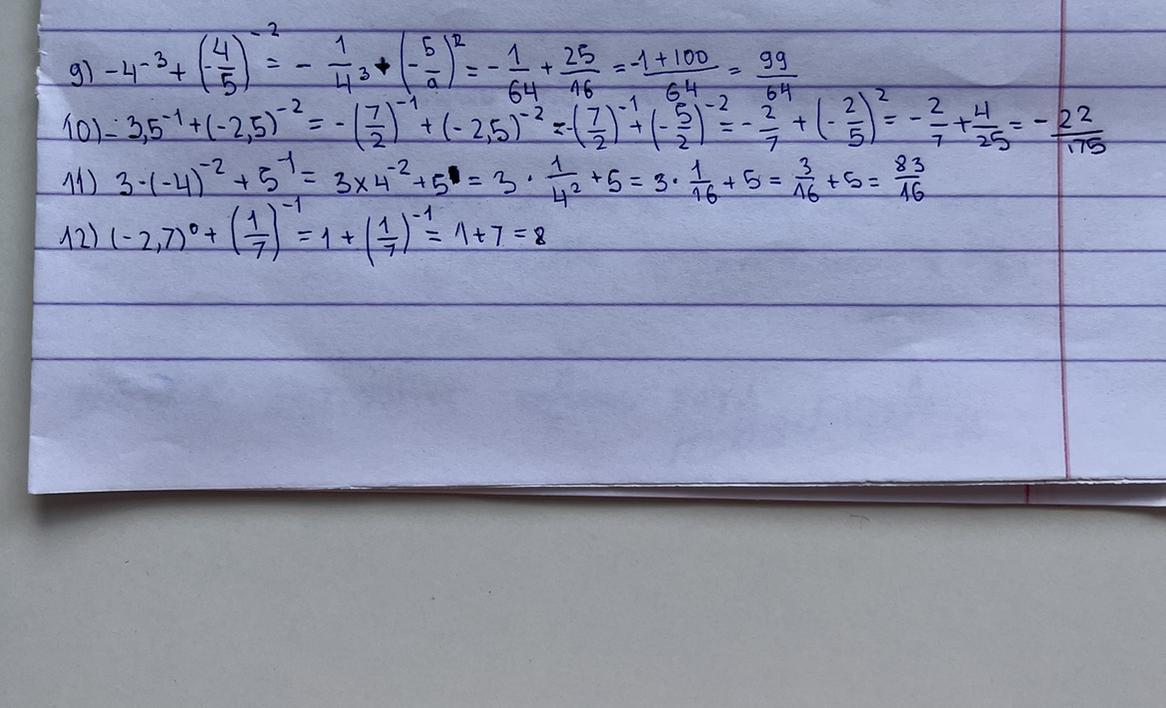 9) -4^-3 + (-4/5)^-2 = - 1/4^3 + (-5/4)^2 = - 1/64 + 25/16 = -1+100/64 = 99/64
10) -3,5^-1 + (-2,5)^-2 = -(7/2)^-1 + (-2,5)^-2 = -(7/2)^-1 + (-5/2)^-2 = -2/7 + (-2/5)^2 = -2/7 + 4/25 = - 22/175
11) 3·(-4)^-2 + 5^-1 = 3×4^-2 + 5 = 3 · 1/4^2 + 5 = 3· 1/16 + 5 = 3/16 + 5 = 83/16
12) (-2,7)^0 + (1/7)^-1 = 1 + (1/7)^-1 = 1+7 = 8